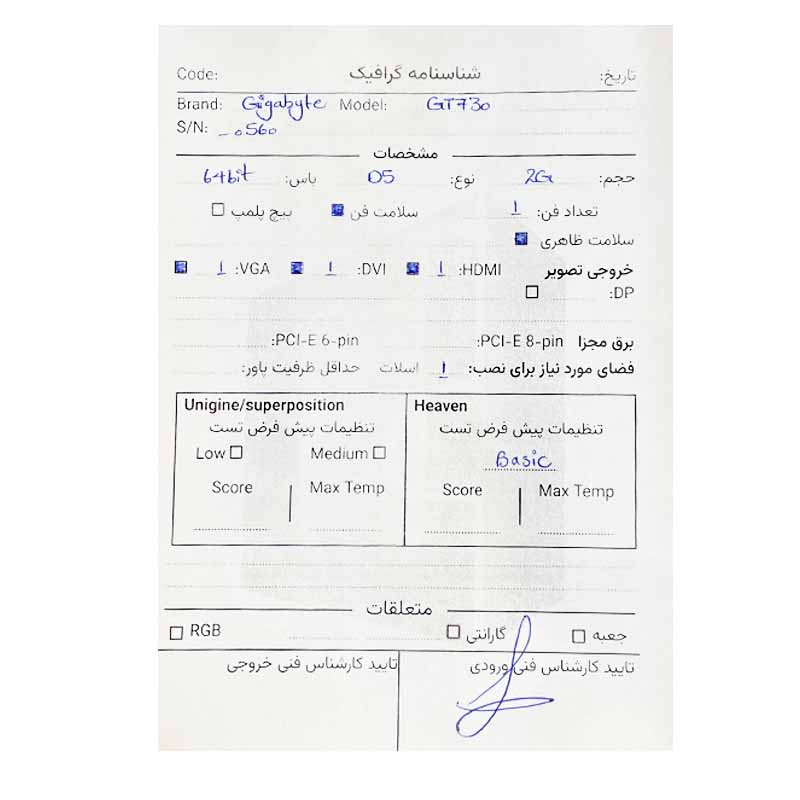 Code: شناسنامه گرافیک تاریخ:
Brand: Gigabyte Model: GT730
S/N: _0560
مشخصات
حجم: 2G نوع: D5 باس: 64bit
تعداد فن: 1 سلامت فن پیچ پلمپ
سلامت ظاهری
خروجی تصویر HDMI: 1 DVI: 1 VGA: 1
DP:
برق مجزا PCI-E 8-pin: PCI-E 6-pin:
فضای مورد نیاز برای نصب: 1 اسلات حداقل ظرفیت پاور:
Unigine/superposition
تنظیمات پیش فرض تست
Low Medium
Score Max Temp
Heaven
تنظیمات پیش فرض تست
Basic
Score Max Temp
متعلقات
جعبه گارانتی RGB
تایید کارشناس فنی ورودی تایید کارشناس فنی خروجی